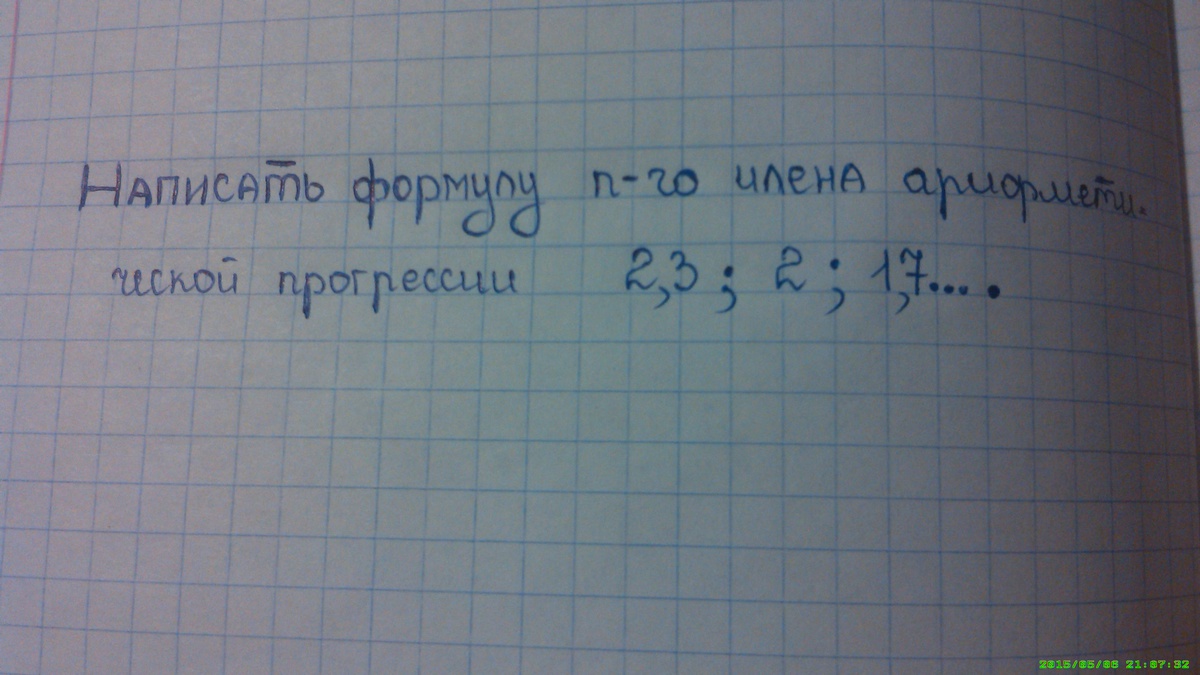 Написать формулу n-го члена арифмети-
ческой прогрессии 2,3 ; 2 ; 1,7... .
2015/05/06 21:07:32